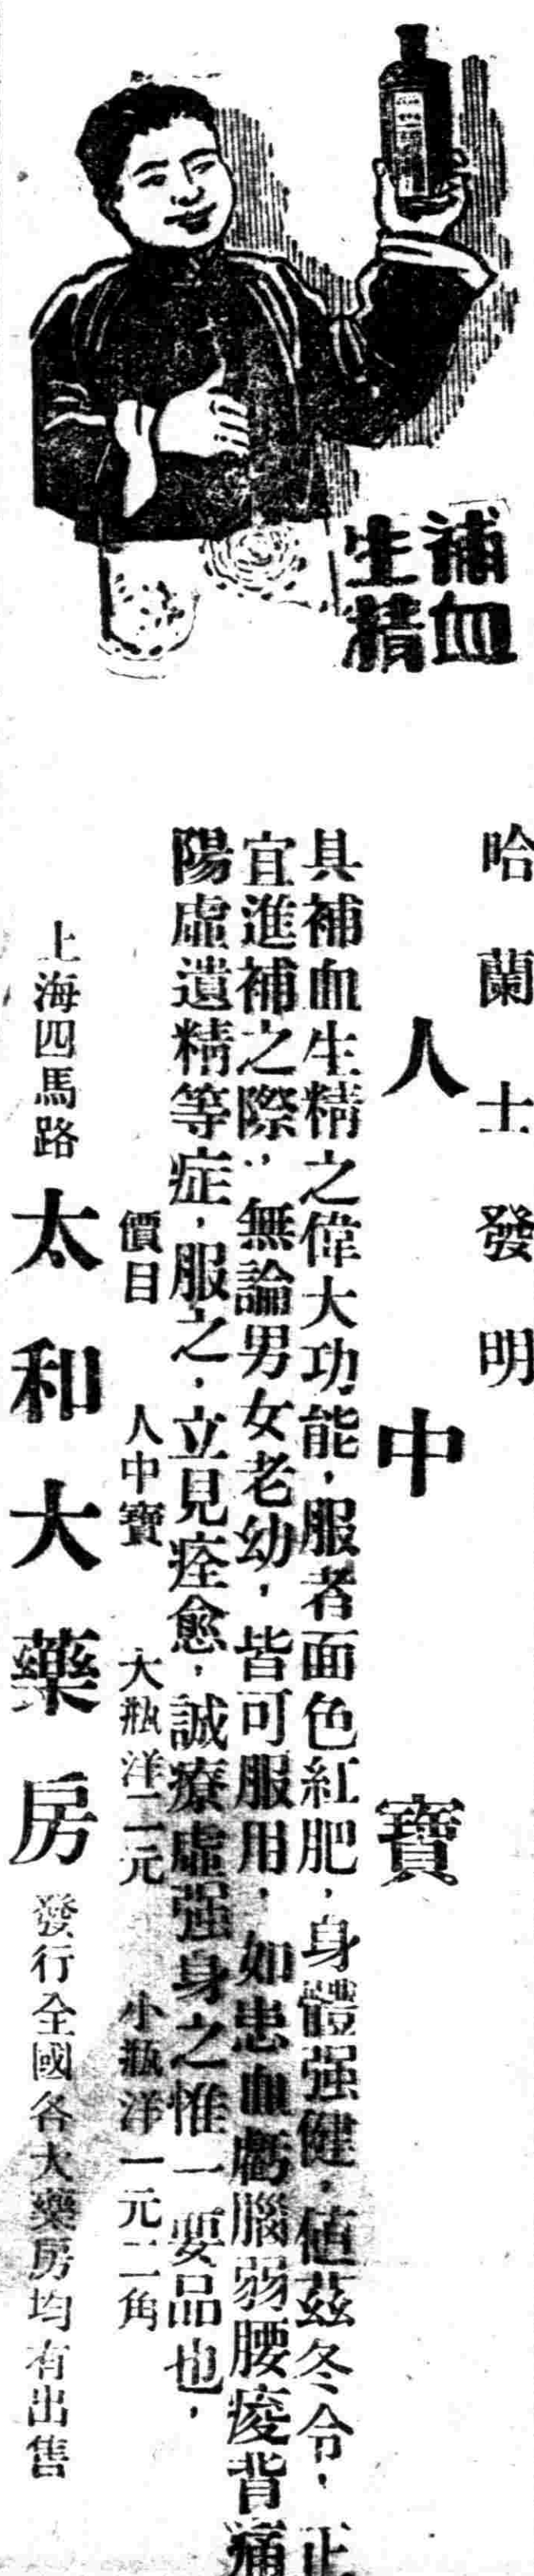 補血
生精
哈蘭士發明
人中寶
具補血生精之偉大功能，服者面色紅肥，身體强健，値茲冬令，正
宜進補之際，無論男女老幼，皆可服用，如患血虧腦弱腰痠背痛
陽虛遺精等症，服之，立見痊愈，誠療虛强身之惟一要品也，
價目 人中寶 大瓶洋二元 小瓶洋一元二角
上海四馬路太和大藥房發行全國各大藥房均有出售